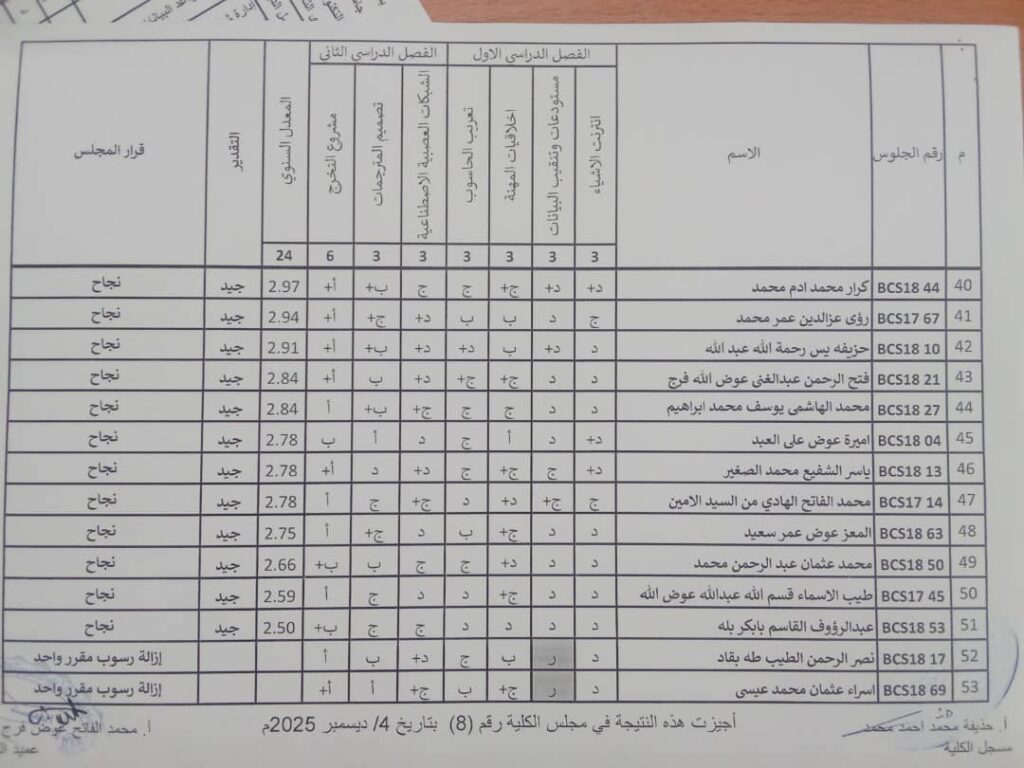 الفصل الدراسي الاول الفصل الدراسي الثاني
م رقم الجلوس الاسم انترنت الاشياء مستودعات وتنقيب البيانات اخلاقيات المهنة تعريب الحاسوب الشبكات العصبية الاصطناعية تصميم المترجمات مشروع التخرج المعدل السنوي التقدير قرار المجلس
3 3 3 3 3 3 6 24
40 BCS18 44 كرار محمد ادم محمد د+ د+ ج+ ج ج ب+ أ+ 2.97 جيد نجاح
41 BCS17 67 رؤى عزالدين عمر محمد ج د ب ب د+ ج+ أ+ 2.94 جيد نجاح
42 BCS18 10 حزيفه يس رحمة الله عبد الله د د+ ب د+ د+ ب+ أ+ 2.91 جيد نجاح
43 BCS18 21 فتح الرحمن عبدالغنى عوض الله فرج د د ج+ ج+ د+ ب أ+ 2.84 جيد نجاح
44 BCS18 27 محمد الهاشمى يوسف محمد ابراهيم د د ج ج ج+ ب+ أ 2.84 جيد نجاح
45 BCS18 04 اميرة عوض على العبد د+ د أ ج د أ ب 2.78 جيد نجاح
46 BCS18 13 ياسر الشفيع محمد الصغير د+ ج ج+ ج د+ د أ+ 2.78 جيد نجاح
47 BCS17 14 محمد الفاتح الهادي من السيد الامين ج ج+ د+ د ج+ ج أ 2.78 جيد نجاح
48 BCS18 63 المعز عوض عمر سعيد د د ج+ ب د ج+ أ 2.75 جيد نجاح
49 BCS18 50 محمد عثمان عبد الرحمن محمد د د د+ ج ج ب ب+ 2.66 جيد نجاح
50 BCS17 45 طيب الاسماء قسم الله عبدالله عوض الله د د ج+ د د ج أ 2.59 جيد نجاح
51 BCS18 53 عبدالرؤوف القاسم بابكر بله د د د د ج ج ب+ 2.50 جيد نجاح
52 BCS18 17 نصر الرحمن الطيب طه بقاد د ر ب ج د+ ب أ إزالة رسوب مقرر واحد
53 BCS18 69 اسراء عثمان محمد عيسى د ر ج+ ب ج+ أ أ+ إزالة رسوب مقرر واحد
أ. حذيفة محمد احمد محمد أجيزت هذه النتيجة في مجلس الكلية رقم (8) بتاريخ 4/ ديسمبر 2025م أ. محمد الفاتح عوض فرج
مسجل الكلية عميد